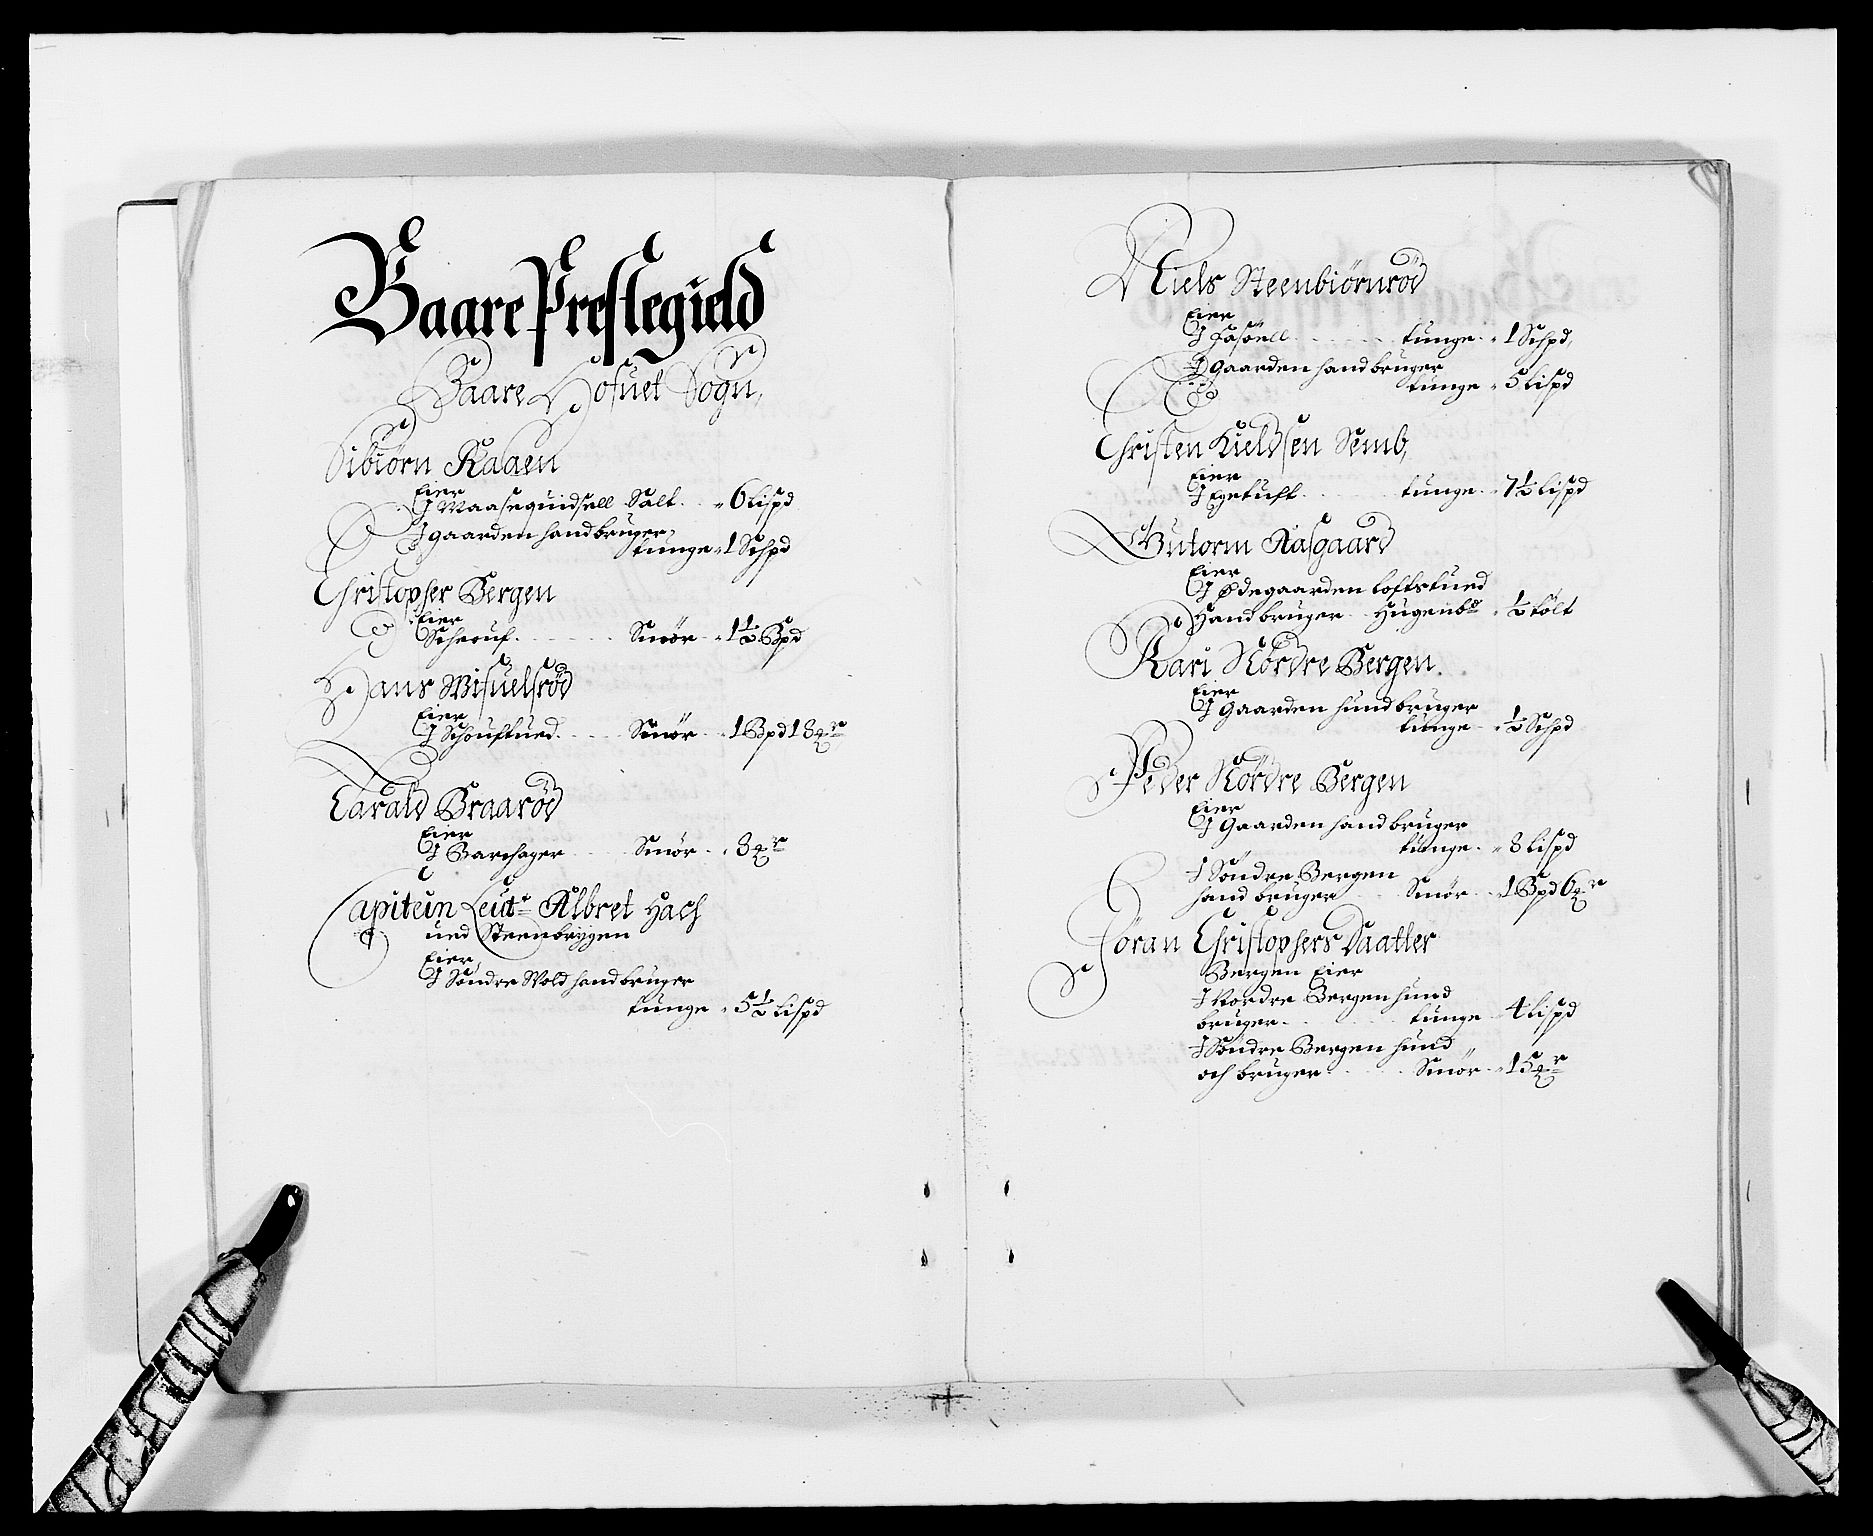 Baare Prestegield
Baare Hofuet Sogn,
Sibiørn Raaen
Eier
J Waasequidsell Salt . . 6 lispd
J gaarden hand bruger,
tunge 1 Schpd
Christopher Bergen
Eier
Schouf . . . . Smør . 1½ Bpd
Hans Wisuelsrød
Eier
J Schouftued . . . Smør . 1 Bpd 18 mr
Harald Braarød
Eier
J Barchager . . . Smør . 8 mr
Capitein Leutt Albret Hach
ued Steenbrygen
Eier,
J Søndre Wold hand bruger
tunge . 5½ lispd
Niels Steenbiørnrød
Eier
J . . . . tunge . 1 Schpd,
J gaarden hand bruger
tunge 5 lispd
Christen Kieldsen Semb,
Eier
J Egetuft . . . tunge . 7½ lispd
Gutorm Aasgaard
Eier
J Ødegaarden loftstued
Hand bruger . . ½ tølt
Kari Nørdre Bergen.
Eier
J Gaarden hund bruger
tunge . ½ Schpd
Peder Nørdre Bergen
Eier
J Gaarden hand bruger
tunge . 8 lispd
J Søndre Bergen
hand bruger . . Smør . 1 Bpd 6 mr
Jøran Christophers Daatter
Bergen Eier
J Nordre Bergen hund
bruger . . . tunge 4 lispd
J Søndre Bergen hund
och bruger . . . Smør . 15 mr